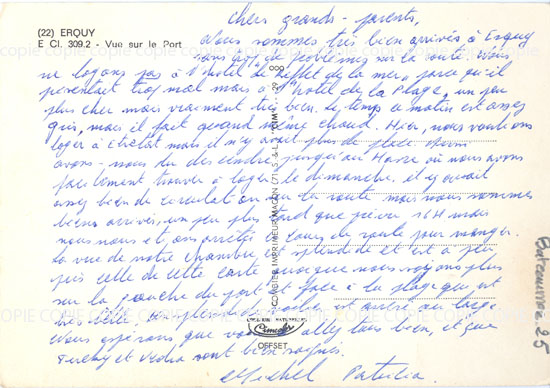 (22) ERQUY
E Cl. 309.2 - Vue sur le Port
Chers grands-parents,
Nous sommes très bien arrivés à Erquy
sans trop de problèmes sur la route. Nous
ne logeons pas à l'hôtel de la mer, parce qu'il
présentait trop mal mais à l'hôtel de la Plage, un peu
plus cher mais vraiment très bien. Le temps ce matin est assez
gris, mais il fait quand même chaud. Hier, nous voulions
loger à mais il n'y avait plus de place
avons-nous dû descendre jusqu'au où nous avons
facilement trouvé à loger le dimanche. Il y avait
assez bien de circulation sur la route mais nous sommes
bien arrivés, un peu plus tard que prévu, 16H mais
nous nous étions arrêtés en cours de route pour manger.
La vue de notre chambre est splendide et est à peu
près celle de cette carte quoique nous voyons plus
sur la gauche du port et face à la plage qui est
très belle.
Nous espérons que vous allez tous bien, et que
et sont bien sages.
Michel Patricia.
COMBIER IMPRIMEUR MACON (71) S.-&-L. "CIM"
Cimcolor
OFFSET
25
copie copie copie copie copie copie